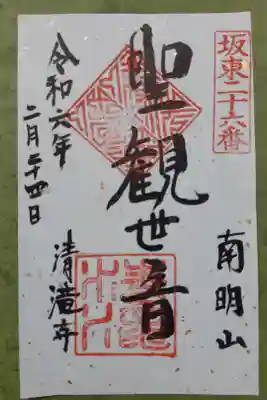 坂東二十六番
南明山
聖観世音
清滝寺
令和六年
二月二十四日